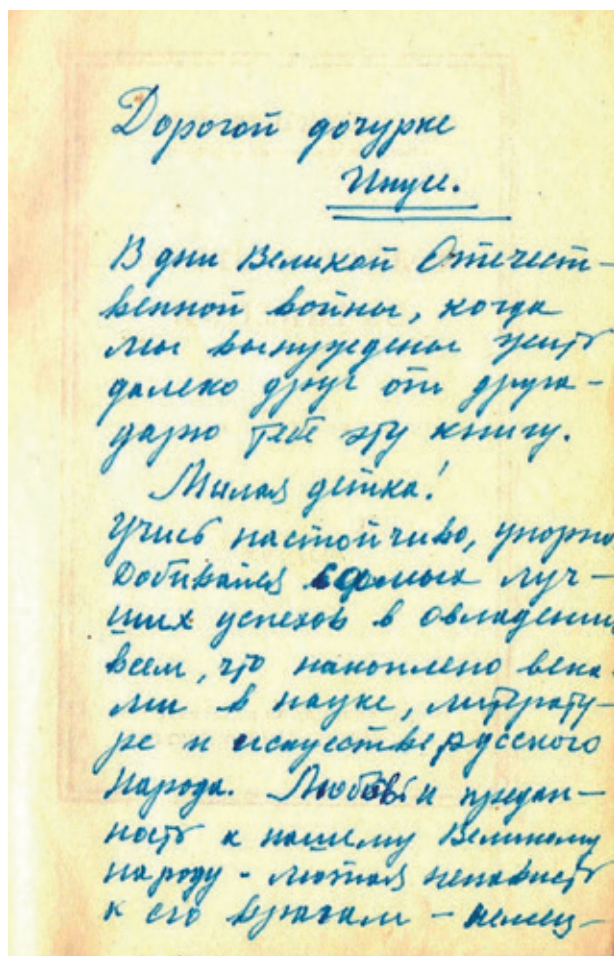 Дорогой дочурке
Инусе.
В дни Великой Отечест-
венной войны, когда
мы вынуждены жить
далеко друг от друга -
дарю тебе эту книгу.
Милая детка!
Учись настойчиво, упорно
добивайся самых луч-
ших успехов в овладении
всем, что накоплено века-
ми в науке, литерату-
ре и искусстве русского
народа. Любовь и предан-
ность к нашему Великому
народу - лютая ненависть
к его врагам - немец-